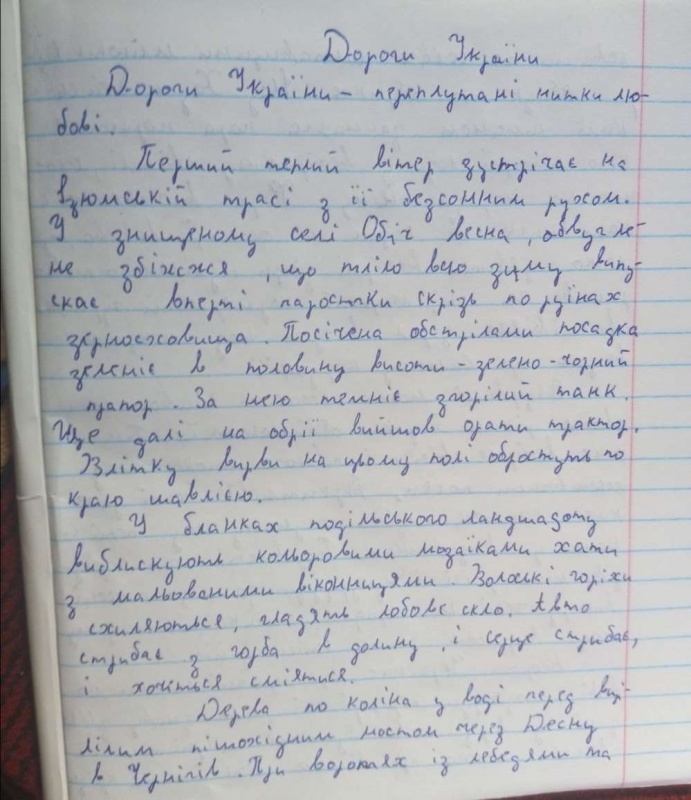 Дороги України
Дороги України – переплутані нитки лю-
бові.
Перший теплий вітер зустрічає на
Ізюмській трасі з її безсонним рухом.
У знищеному селі обіч весна, обвугле-
не збіжжя, що тліло всю зиму випу-
скає вперті паростки скрізь по руїнах
зерносховища. Посічена обстрілами посадка
зеленіє в половину висоти – зелено-чорний
прапор. За нею темніє згорілий танк.
Ще далі на обрії вийшов орати трактор.
Влітку вирви на цьому полі обростуть по
краю шавлією.
У бланках подільського ландшафту
виблискують кольоровими мозаїками хати
з мальованими віконницями. Волоські горіхи
схиляються, гладять лобове скло. Авто
стрибає з горба в долину, і серце стрибає,
і хочеться сміятися.
Дерева по коліна у воді перед вці-
лілим пішохідним мостом через Десну
в Чернігів. При воротях із лебедями та